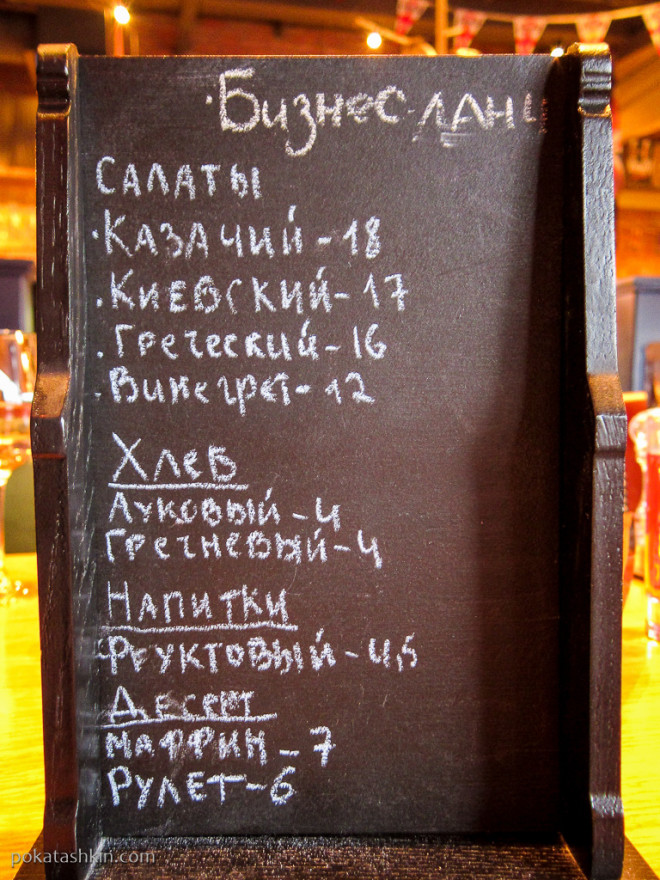 Бизнес-ланч
САЛАТЫ
·КАЗАЧИЙ-18
·КИЕВСКИЙ-17
·Греческий-16
·Винегрет-12
ХЛЕБ
ЛУКОВЫЙ-4
ГРЕЧНЕВЫЙ-4
НАПИТКИ
ФРУКТОВЫЙ-4,5
ДЕСЕРТ
МАФФИН-7
РУЛЕТ-6
pokatashkin.com